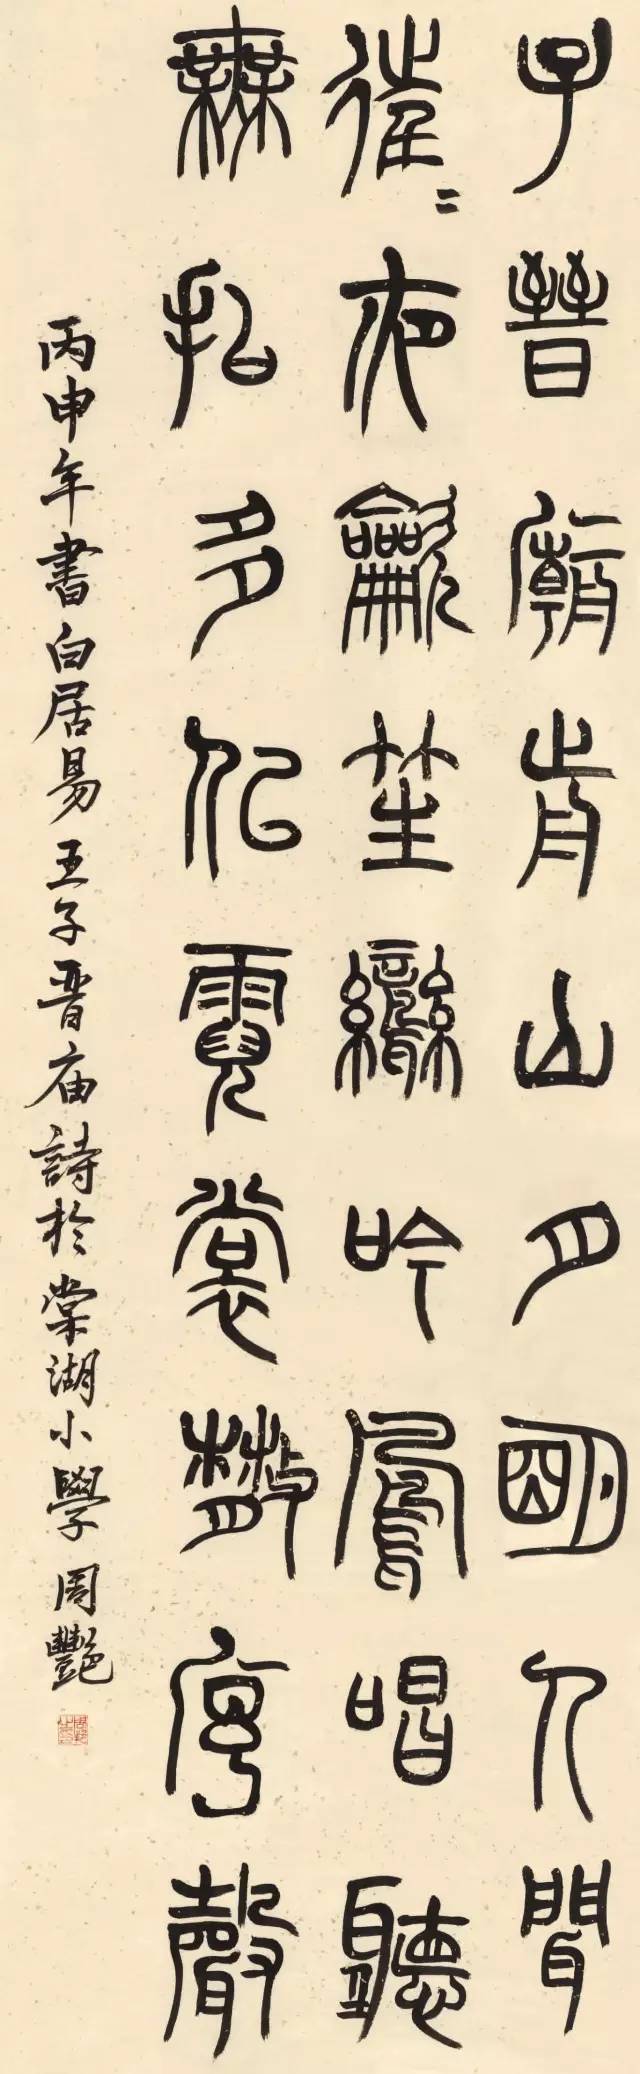 子晉廟前山月明人聞
往〻夜龡笙鸞吟鳳唱聽
無拍多似霓裳散序聲
丙申年書白居易王子晋庙詩於棠湖小學周艷